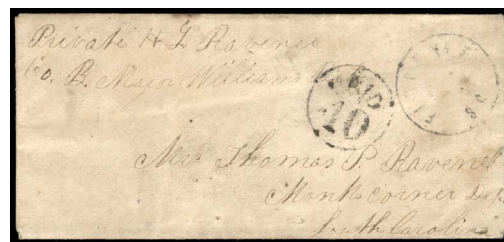 Private H. F. Ravenel
Co. B. Major William
PAID
10
Mrs Thomas P. Ravenel
Monks corner
South Carolina